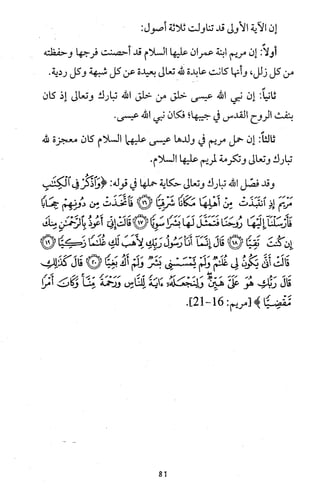 إن الآية الأولى قد تناولت ثلاثة أصول:
أولاً: إن مريم ابنة عمران عليها السلام قد أحصنت فرجها وحفظته
من كل زلل، وأنها كانت عابدة لله تعالى بعيدة عن كل شبهة وكل ردية.
ثانياً: إن نبي الله عيسى خلق من خلق الله تبارك وتعالى إذ كان
بنفث الروح القدس في جيبها؛ فكان نبي الله عيسى.
ثالثاً: إن حمل مريم في ولدها عيسى عليهما السلام كان معجزة لله
تبارك وتعالى وتكرمة لمريم عليها السلام.
وقد فصّل الله تبارك وتعالى حكاية حملها في قوله: ﴿وَٱذْكُرْ فِى ٱلْكِتَـٰبِ
مَرْيَمَ إِذِ ٱنتَبَذَتْ مِنْ أَهْلِهَا مَكَانًا شَرْقِيًّا ﴿١٦﴾ فَٱتَّخَذَتْ مِن دُونِهِمْ حِجَابًا
فَأَرْسَلْنَآ إِلَيْهَا رُوحَنَا فَتَمَثَّلَ لَهَا بَشَرًا سَوِيًّا ﴿١٧﴾ قَالَتْ إِنِّىٓ أَعُوذُ بِٱلرَّحْمَـٰنِ مِنكَ
إِن كُنتَ تَقِيًّا ﴿١٨﴾ قَالَ إِنَّمَآ أَنَا۠ رَسُولُ رَبِّكِ لِأَهَبَ لَكِ غُلَـٰمًا زَكِيًّا ﴿١٩﴾
قَالَتْ أَنَّىٰ يَكُونُ لِى غُلَـٰمٌ وَلَمْ يَمْسَسْنِى بَشَرٌ وَلَمْ أَكُ بَغِيًّا ﴿٢٠﴾ قَالَ كَذَٰلِكِ
قَالَ رَبُّكِ هُوَ عَلَىَّ هَيِّنٌ وَلِنَجْعَلَهُۥٓ ءَايَةً لِّلنَّاسِ وَرَحْمَةً مِّنَّا وَكَانَ أَمْرًا
مَّقْضِيًّا﴾ [مريم: 16-21].
81